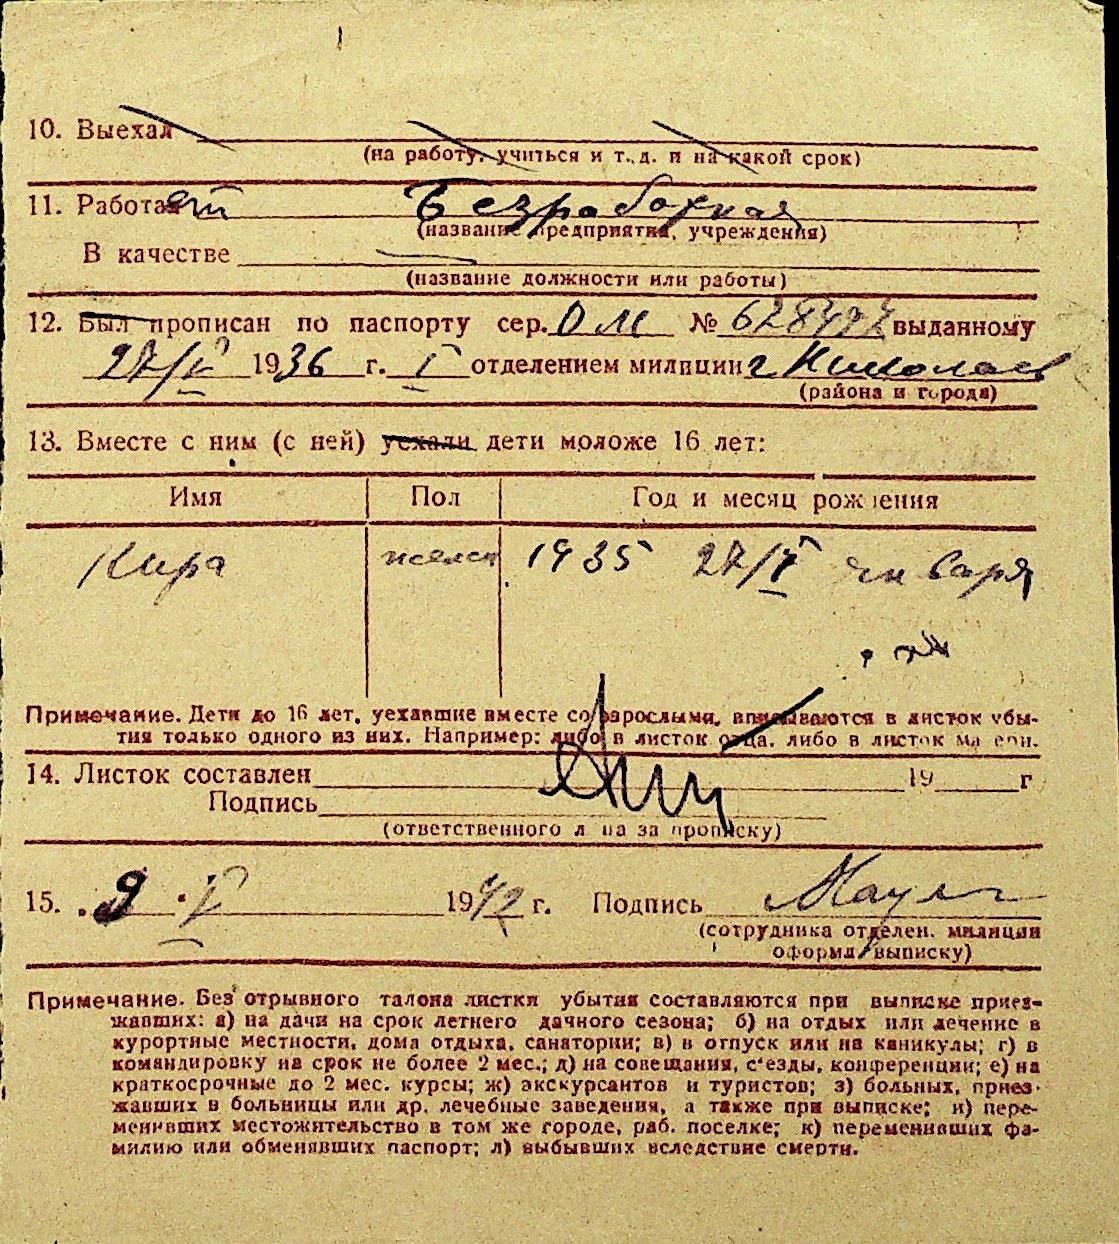 10. Выехал
(на работу, учиться и т. д. и на какой срок)
11. Работает Безработная
(название предприятия, учреждения)
В качестве —
(название должности или работы)
12. Был прописан по паспорту сер. ОМ № выданному
27/V 1936 г. I отделением милиции г. Николаев
(района и города)
13. Вместе с ним (с ней) уехали дети моложе 16 лет:
Имя Пол Год и месяц рождения
Кира женск 1935 27/I января
Примечание. Дети до 16 лет, уехавшие вместе со взрослыми, вписываются в листок убы-
тия только одного из них. Например: либо в листок отца, либо в листок матери.
14. Листок составлен 19 г
Подпись
(ответственного лица за прописку)
15. 9 V 1942 г. Подпись
(сотрудника отделен. милиции
оформл. выписку)
Примечание. Без отрывного талона листки убытия составляются при выписке приез-
жавших: а) на дачи на срок летнего дачного сезона; б) на отдых или лечение в
курортные местности, дома отдыха, санатории; в) в отпуск или на каникулы; г) в
командировку на срок не более 2 мес.; д) на совещания, с'езды, конференции; е) на
краткосрочные до 2 мес. курсы; ж) экскурсантов и туристов; з) больных, приез-
жавших в больницы или др. лечебные заведения, а также при выписке; и) пере-
менивших местожительство в том же городе, раб. поселке; к) переменивших фа-
милию или обменявших паспорт; л) выбывших вследствие смерти.